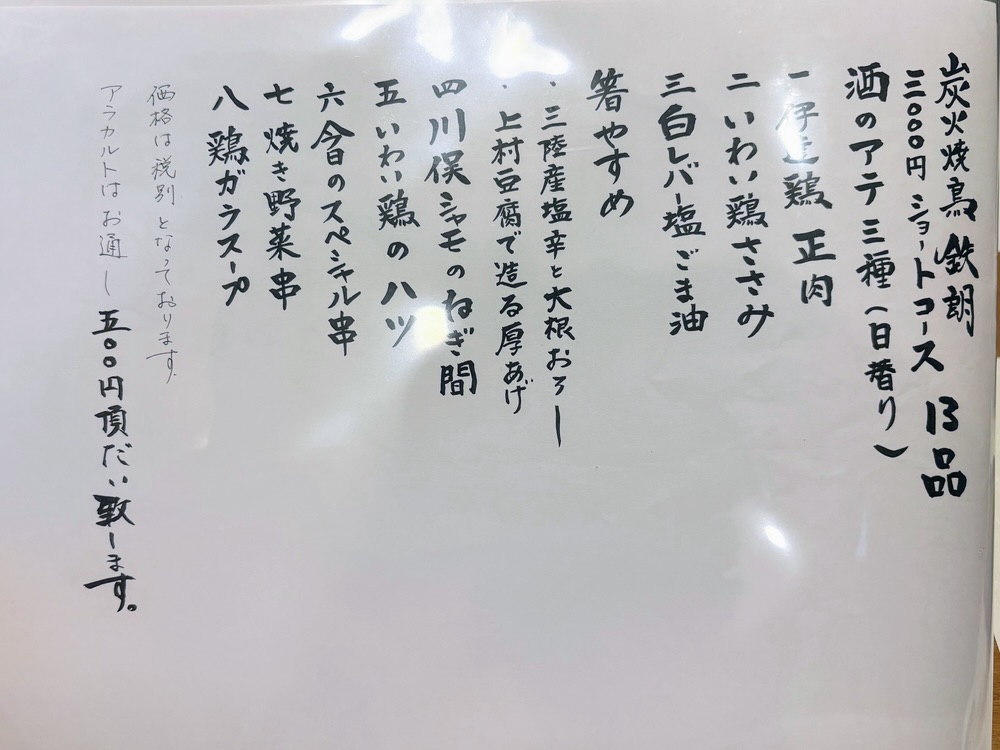 炭火焼鳥 鉄朗
三〇〇〇円 ショートコース 13品
酒のアテ三種(日替り)
一 伊達鶏 正肉
二 いわい鶏ささみ
三 白レバー塩ごま油
箸やすめ
・三陸産塩辛と大根おろし
・上村豆腐で造る厚あげ
四 川俣シャモのねぎ間
五 いわい鶏のハツ
六 今日のスペシャル串
七 焼き野菜串
八 鶏ガラスープ
価格は税別となっております。
アラカルトはお通し五〇〇円頂だい致します。